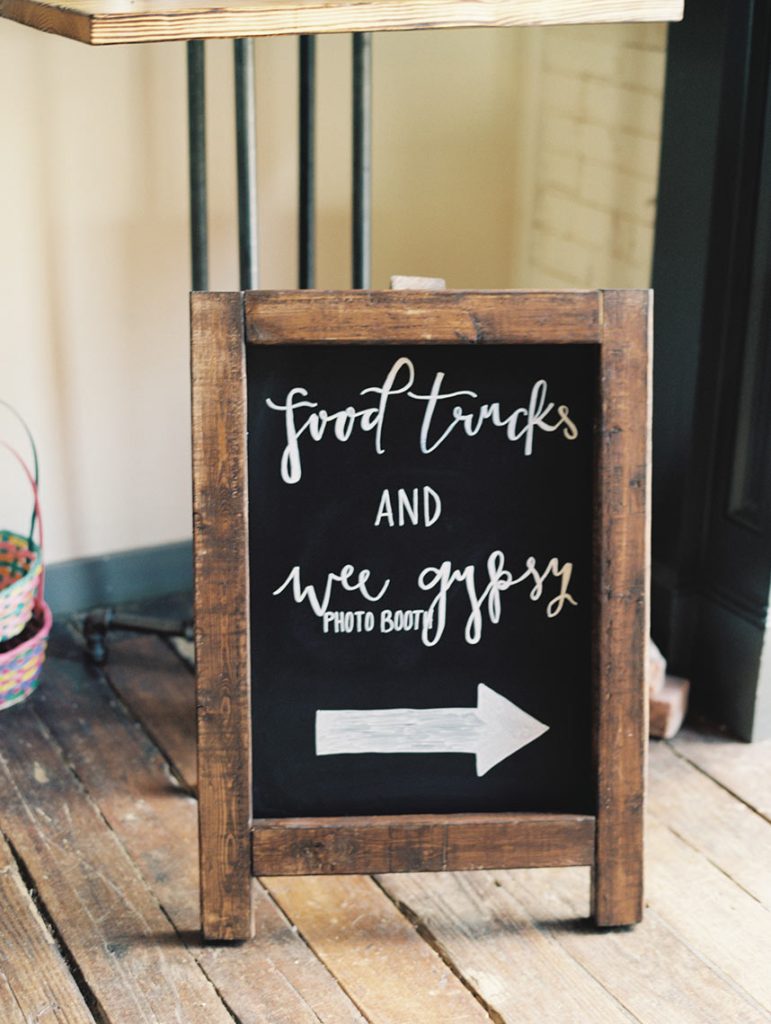 food trucks
AND
wee gypsy
PHOTO BOOTH